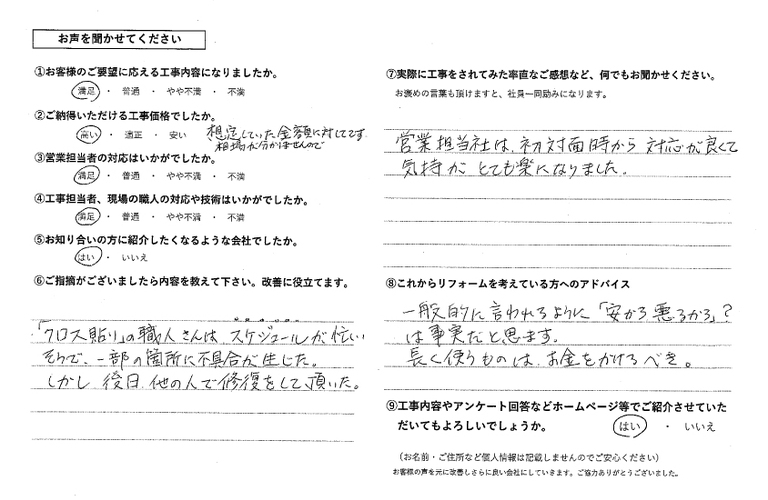 お声を聞かせてください
①お客様のご要望に応える工事内容になりましたか。
満足 ・ 普通 ・ やや不満 ・ 不満
②ご納得いただける工事価格でしたか。
高い ・ 適正 ・ 安い 想定していた金額に対してです
相場が分かりませんので
③営業担当者の対応はいかがでしたか。
満足 ・ 普通 ・ やや不満 ・ 不満
④工事担当者、現場の職人の対応や技術はいかがでしたか。
満足 ・ 普通 ・ やや不満 ・ 不満
⑤お知り合いの方に紹介したくなるような会社でしたか。
はい ・ いいえ
⑥ご指摘がございましたら内容を教えて下さい。改善に役立てます。
「クロス貼り」の職人さんは、スケジュールが忙しい
そうで、一部の箇所に不具合が生じた。
しかし 後日、他の人で修復をして頂いた。
⑦実際に工事をされてみた率直なご感想など、何でもお聞かせください。
お褒めの言葉も頂けますと、社員一同励みになります。
営業担当社は、初対面時から 対応が良くて
気持が とても楽になりました。
⑧これからリフォームを考えている方へのアドバイス
一般的に言われるように「安かろ悪るかろ」?
は事実だと思ます。
長く使うものは、お金をかけるべき。
⑨工事内容やアンケート回答などホームページ等でご紹介させていた
だいてもよろしいでしょうか。 はい ・ いいえ
（お名前・ご住所など個人情報は記載しませんのでご安心ください）
お客様の声を元に改善しさらに良い会社にしていきます。ご協力ありがとうございました。